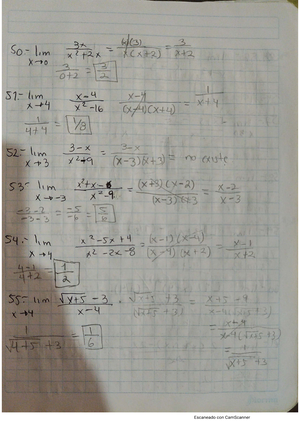 50.- lim x→0 3x / x²+2x = x(3) / x(x+2) = 3 / x+2
3 / 0+2 = 3/2
51.- lim x→4 x-4 / x²-16 x-4 / (x-4)(x+4) = 1 / x+4
1 / 4+4 = 1/8
52.- lim x→3 3-x / x²-9 = 3-x / (x-3)(x+3) = no existe
53.- lim x→-3 x²+x-6 / x²-9 = (x+3)(x-2) / (x-3)(x+3 = x-2 / x-3
-3-2 / -3-3 = -5 / -6 = 5/6
54.- lim x→4 x²-5x+4 / x²-2x-8 = (x-1)(x-4) / (x-4)(x+2) = x-1 / x+2
4-1 / 4+2 = 1/2
55.- lim x→4 √x+5 -3 / x-4 · √x+5 +3 / √x+5 +3 = x+5-9 / x-4(√x+5 +3)
= x-4 / x-4(√x+5 +3)
1 / √4+5 +3 = 1/6
= 1 / √x+5 +3
Escaneado con CamScanner